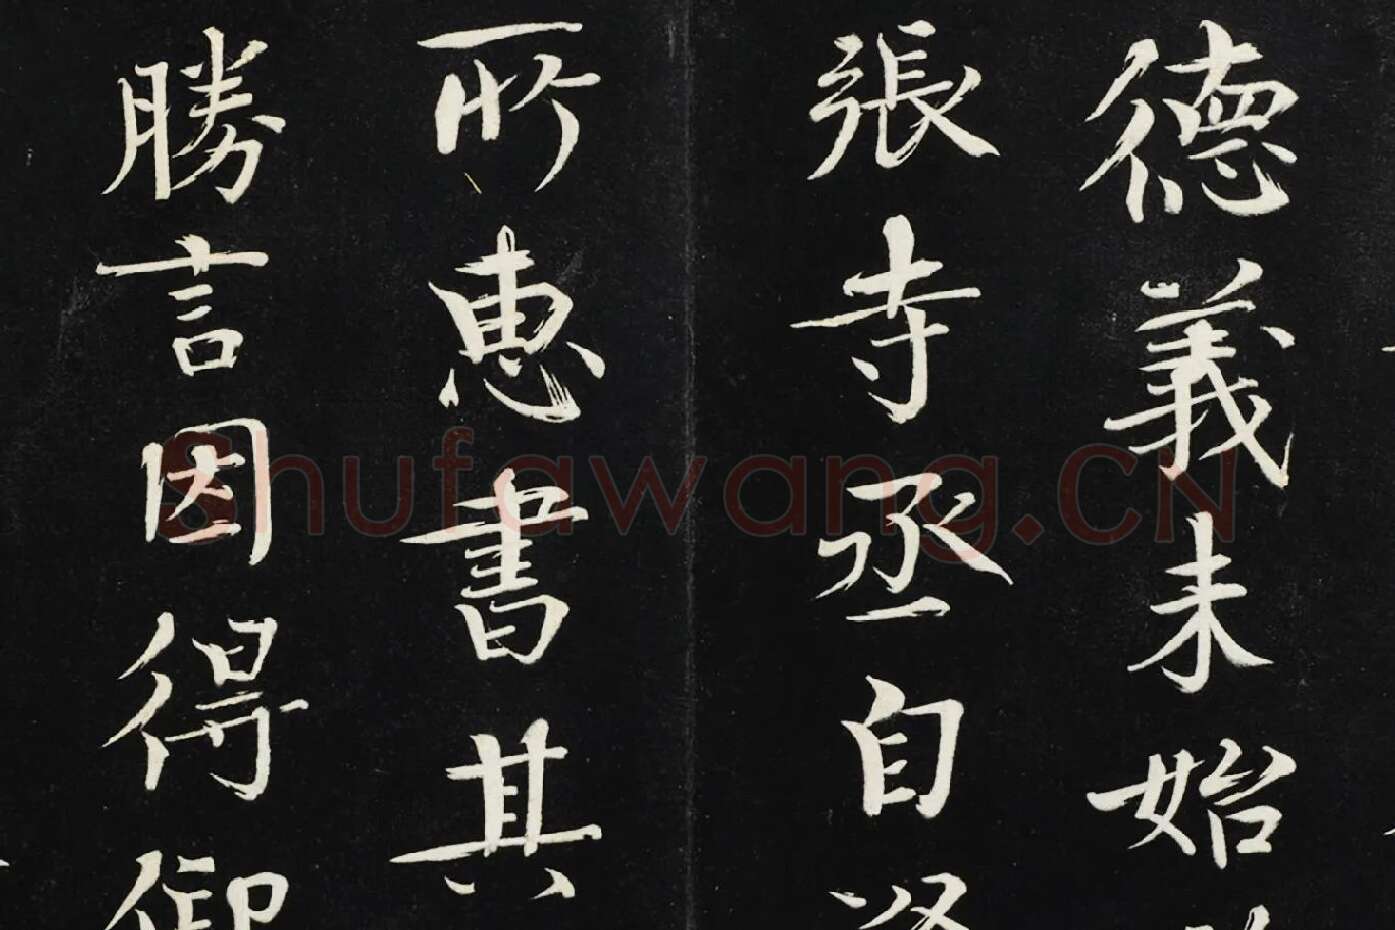 德義未始
張寺丞自
所惠書其
勝言因得御
Shufawang.CN